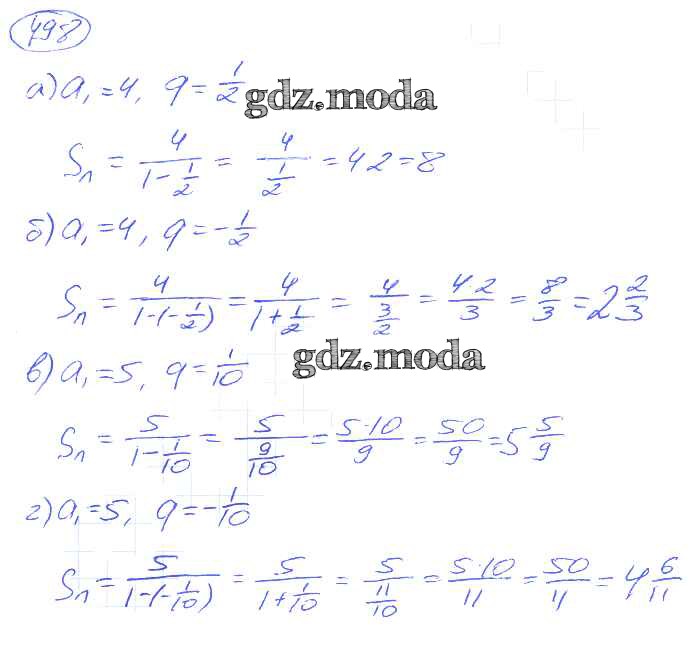 498
а) a₁ = 4, q = 1/2
gdz.moda
Sₙ = 4/(1-1/2) = 4/(1/2) = 4·2 = 8
б) a₁ = 4, q = -1/2
Sₙ = 4/(1-(-1/2)) = 4/(1+1/2) = 4/(3/2) = 4·2/3 = 8/3 = 2 2/3
gdz.moda
в) a₁ = 5, q = 1/10
Sₙ = 5/(1-1/10) = 5/(9/10) = 5·10/9 = 50/9 = 5 5/9
г) a₁ = 5, q = -1/10
Sₙ = 5/(1-(-1/10)) = 5/(1+1/10) = 5/(11/10) = 5·10/11 = 50/11 = 4 6/11